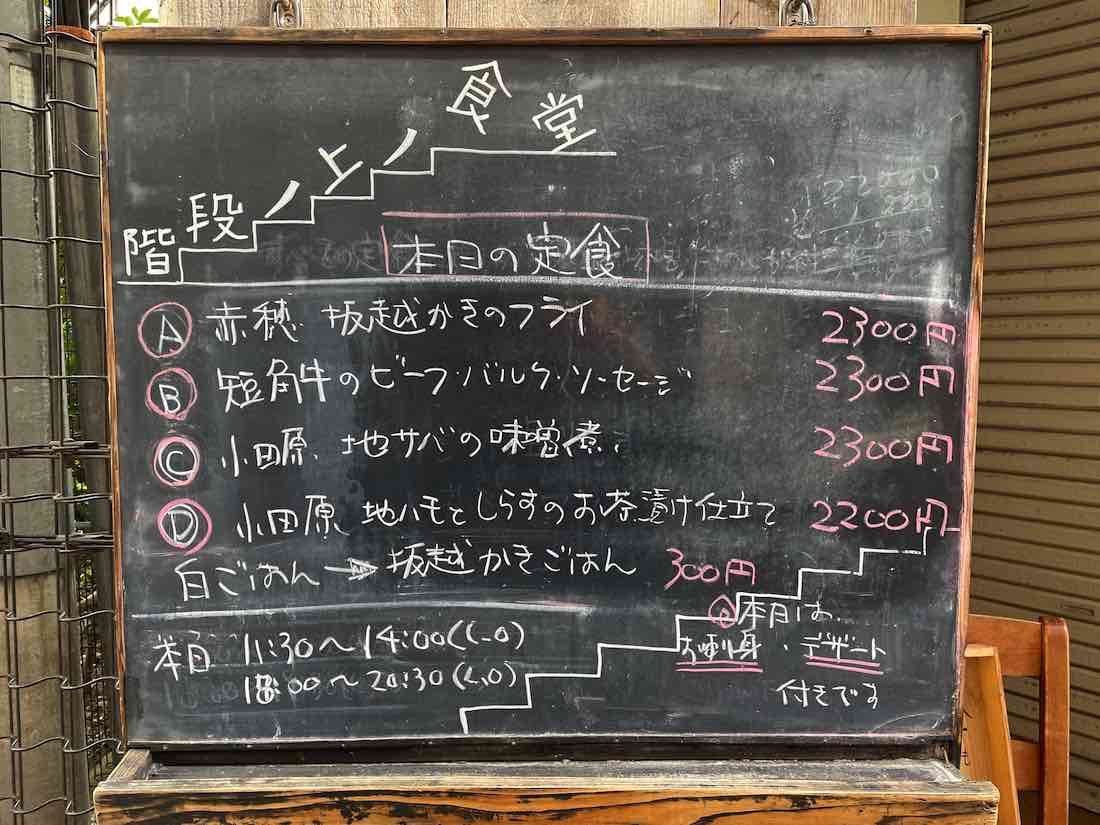 階段ノ上ノ食堂
本日の定食
A 赤穂 坂越かきのフライ 2300円
B 短角牛のビーフ・バルク・ソーセージ 2300円
C 小田原 地サバの味噌煮 2300円
D 小田原 地ハモとしらすのお茶漬け仕立て 2200円
白ごはん→坂越かきごはん 300円
本日 11:30〜14:00(L.O)
18:00〜20:30(L.O)
本日は
お刺身・デザート
付きです